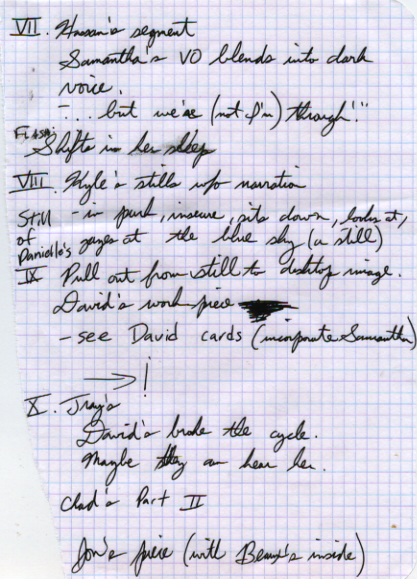 VII. Hassan's segment
Samantha's VO blends into dark
voice.
"... but we're (not I'm) through!"
FLASH:
Shifts in her sleep
VIII. Kyle's stills w/o narration
Still of Danielle's
- in park, insecure, sits down, looks at,
gazes at the blue sky (a still)
IX Pull out from still to desktop image.
David's work piece
- see David cards (incorporate Samantha)
→ !
X. Tray's
David's broke the cycle.
Maybe they can hear her.
Chad's Part II
Jon's piece (with Beaux's inside)